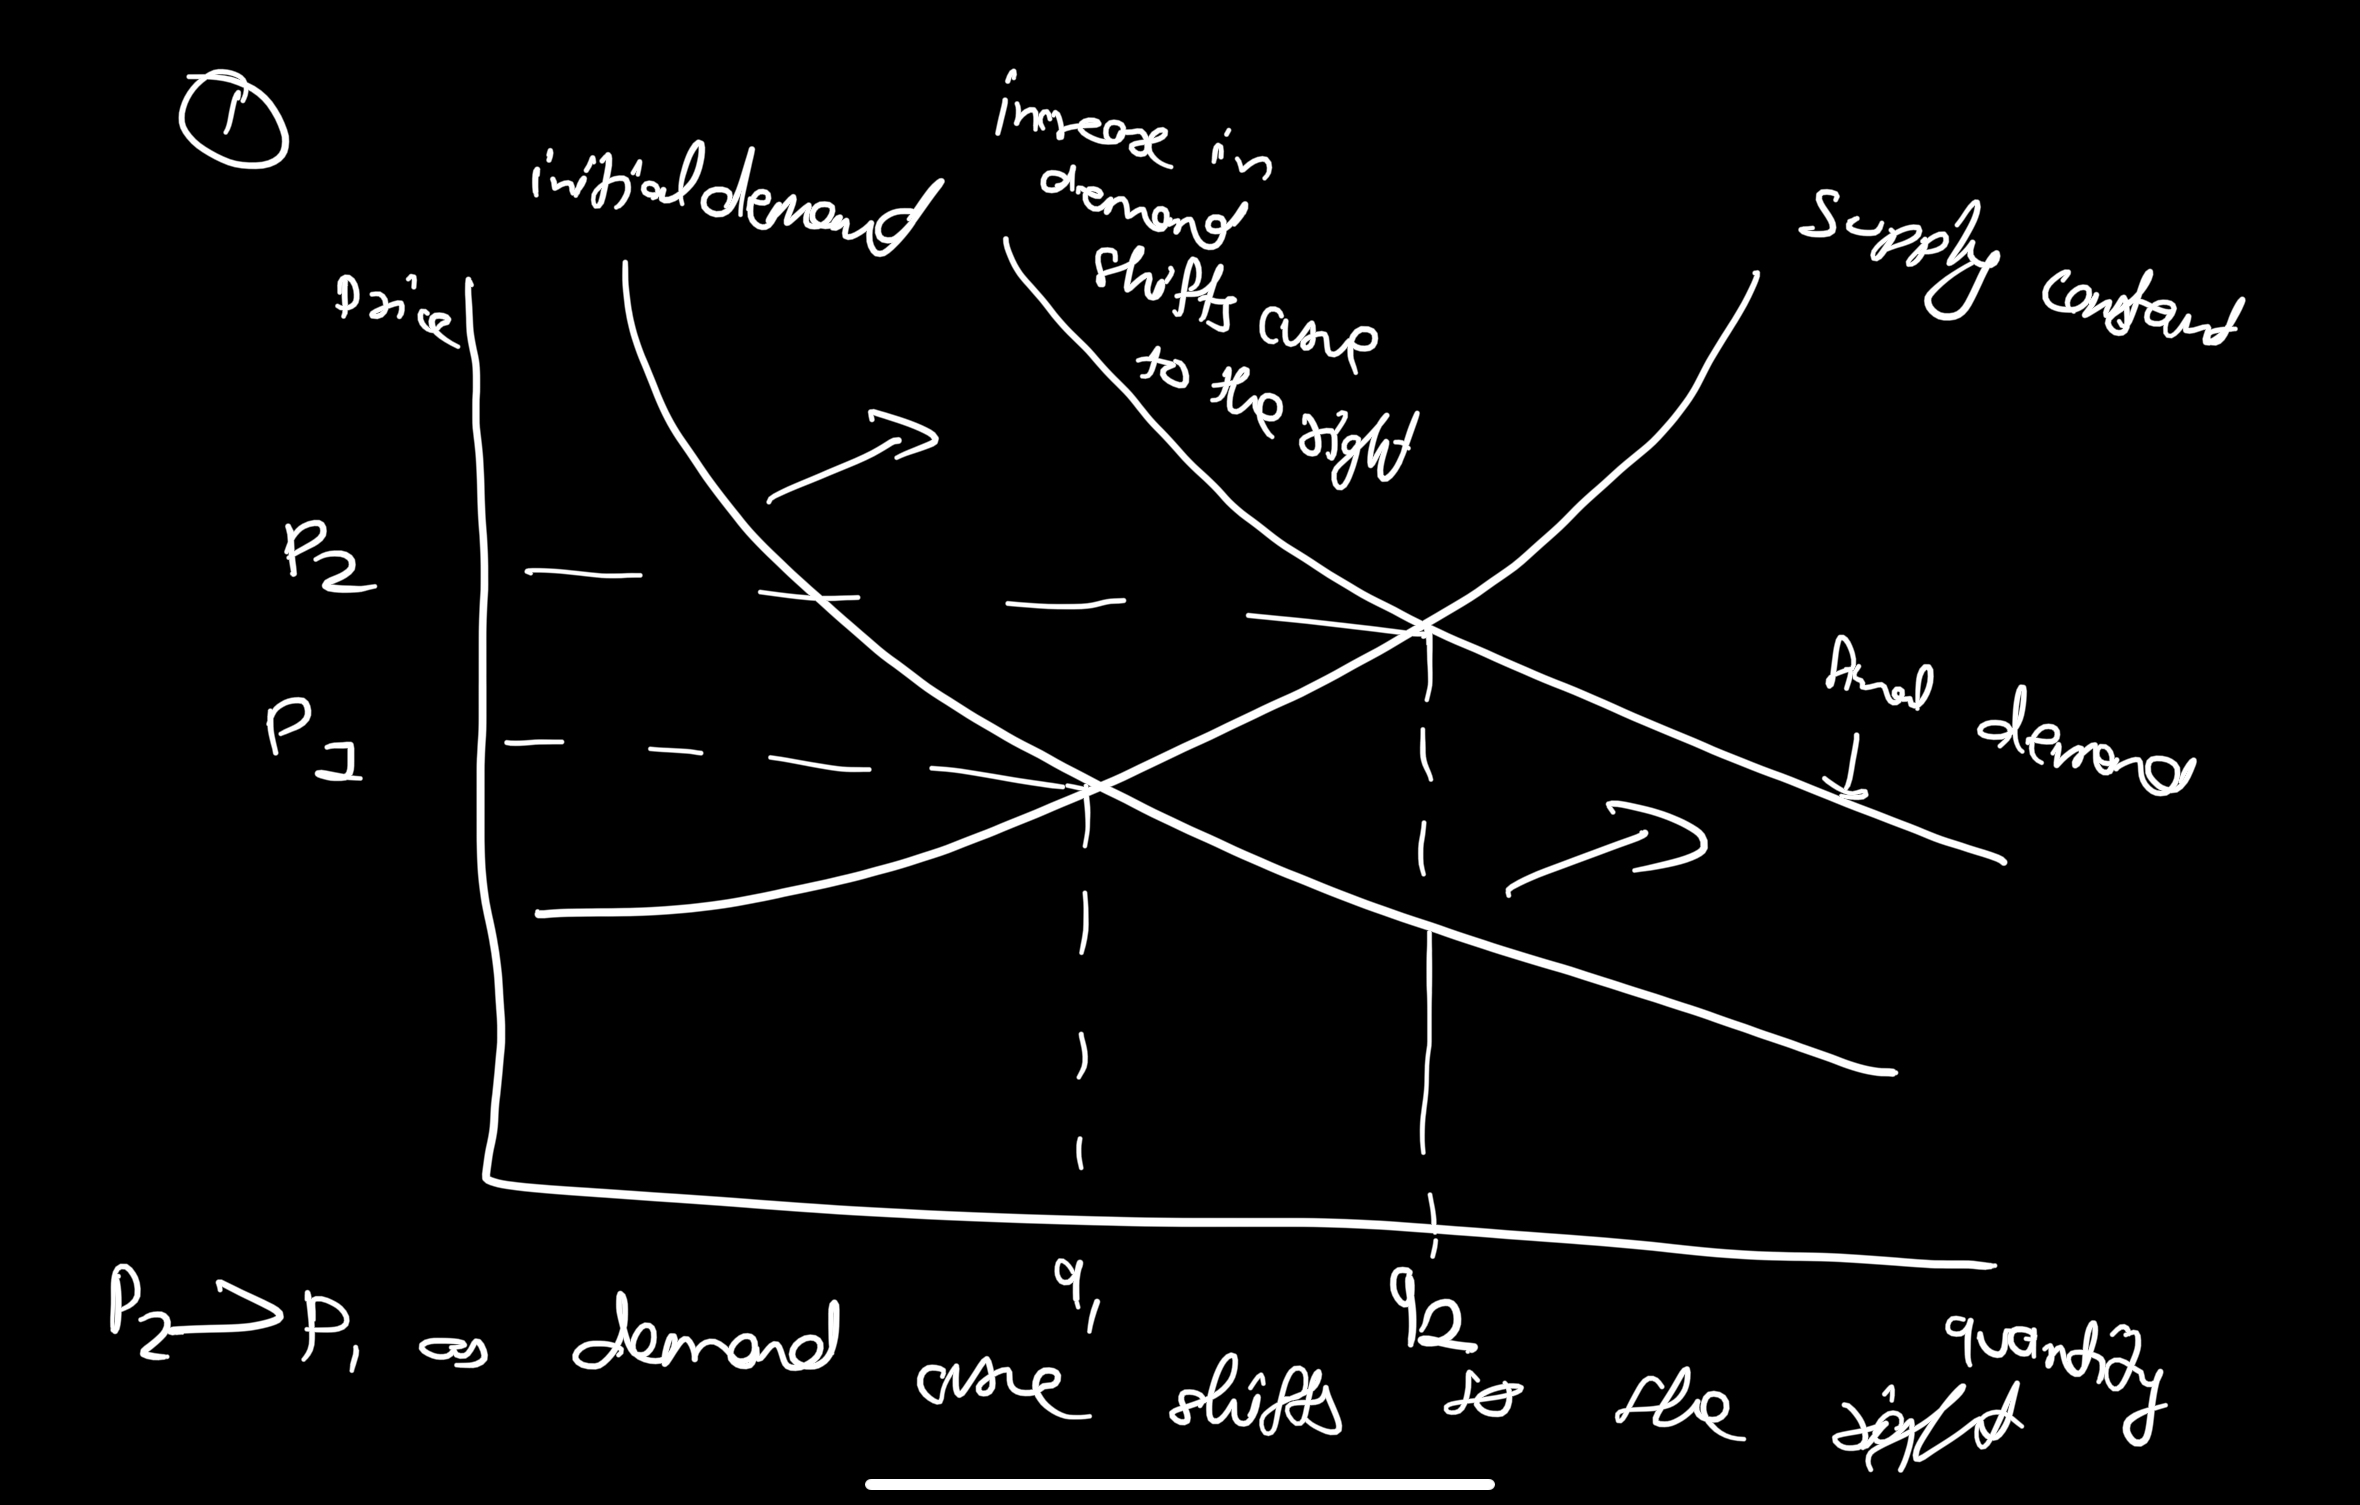 1
initial demand
increase in
demand
shifts curve
to the right
Supply constant
Price
P2
P1
final demand
q1
q2
quantity
P2 > P1 as demand curve shifts to the right